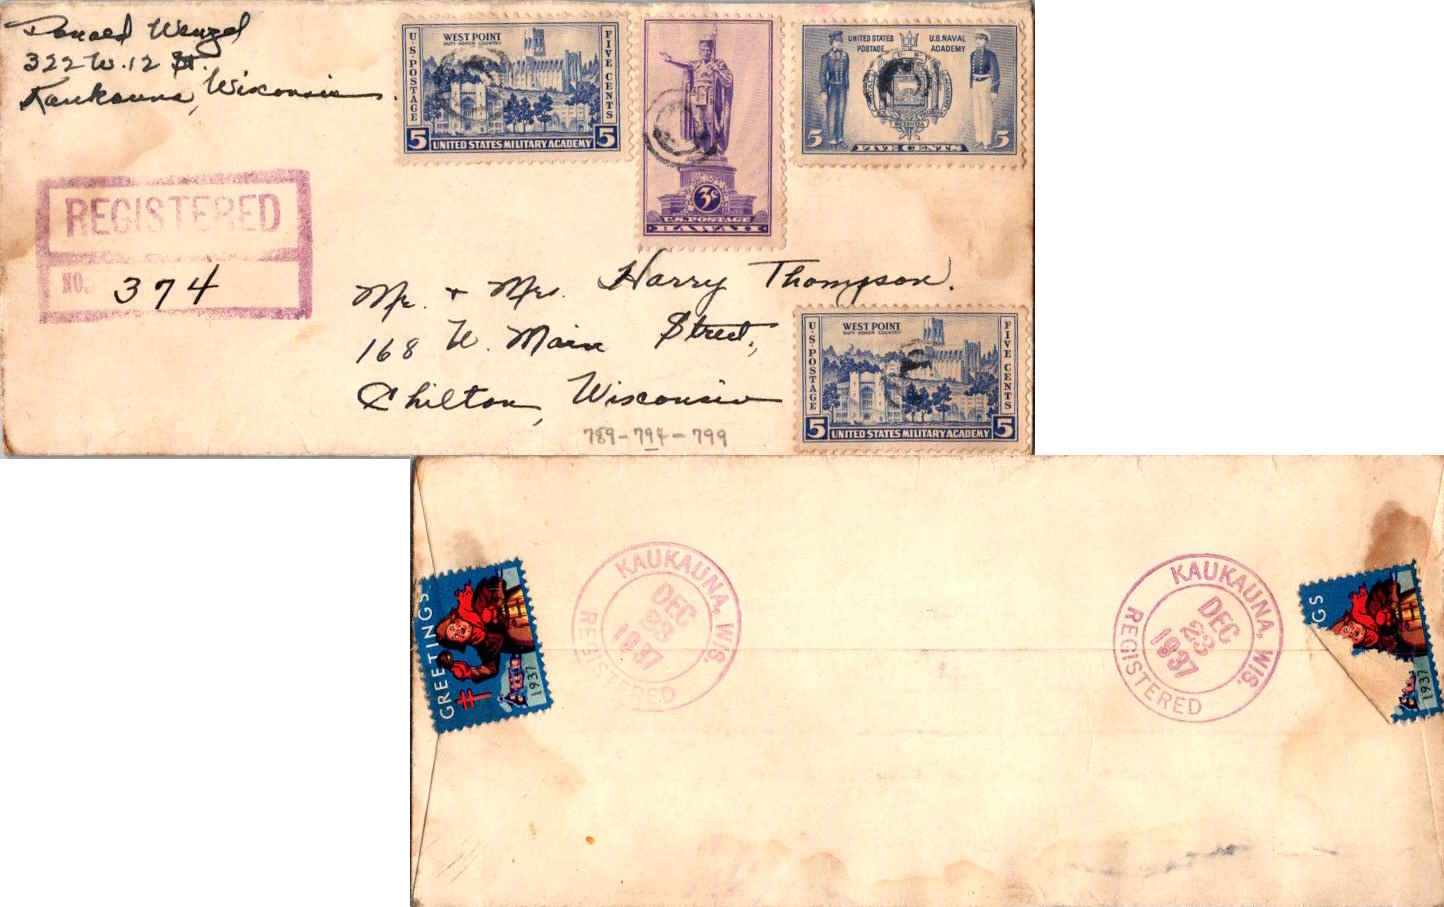 Donald Wenzel
322 W. 12 St.
Kaukauna, Wisconsin.
U.S. POSTAGE
WEST POINT
DUTY HONOR COUNTRY
FIVE CENTS
5 UNITED STATES MILITARY ACADEMY 5
3¢
U.S. POSTAGE
HAWAII
UNITED STATES POSTAGE
U.S. NAVAL ACADEMY
5 FIVE CENTS 5
REGISTERED
NO. 374
Mr. + Mrs. Harry Thompson.
168 W. Main Street,
Chilton, Wisconsin
789-794-799
U.S. POSTAGE
WEST POINT
DUTY HONOR COUNTRY
FIVE CENTS
5 UNITED STATES MILITARY ACADEMY 5
GREETINGS
1937
KAUKAUNA, WIS.
DEC
23
1937
REGISTERED
KAUKAUNA, WIS.
DEC
23
1937
REGISTERED
GS
1937